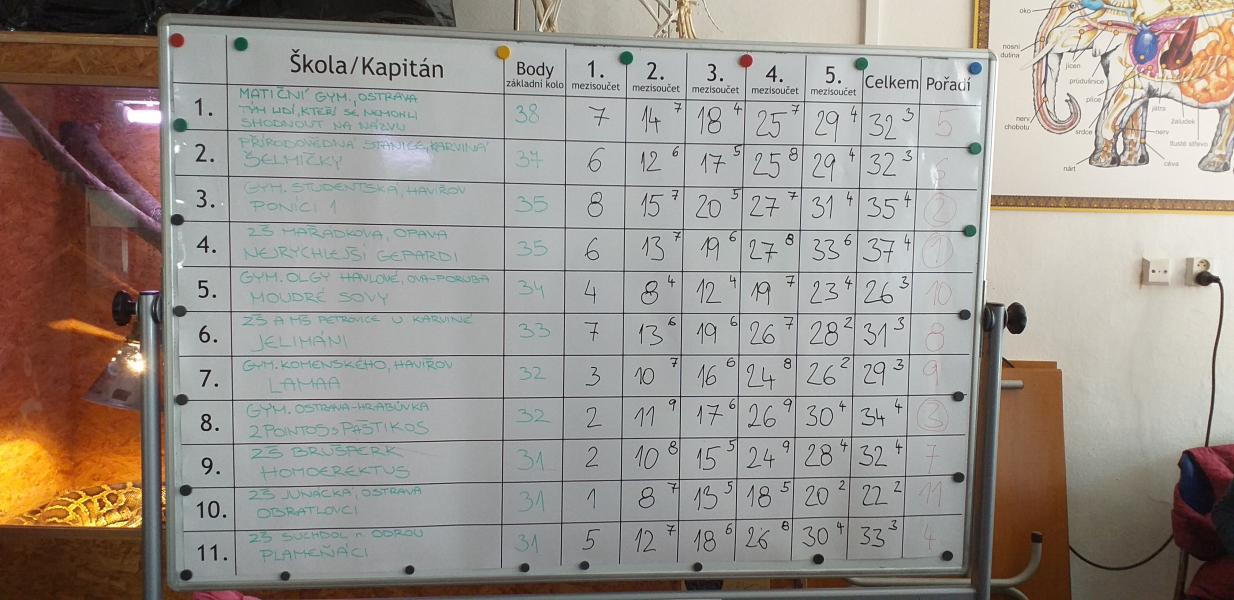 Škola/Kapitán Body základní kolo 1. mezisoučet 2. mezisoučet 3. mezisoučet 4. mezisoučet 5. mezisoučet Celkem Pořadí
1. MATIČNÍ GYM., OSTRAVA
TÝM LIDÍ, KTEŘÍ SE NEMOHLI
SHODNOUT NA NÁZVU 38 7 14 7 18 4 25 7 29 4 32 3 5
2. PŘÍRODOVĚDNÁ STANICE, KARVINÁ
ŠELMIČKY 37 6 12 6 17 5 25 8 29 4 32 3 6
3. GYM. STUDENTSKÁ, HAVÍŘOV
PONÍCI 1 35 8 15 7 20 5 27 7 31 4 35 4 2
4. ZŠ MAŘÁDKOVA, OPAVA
NEJRYCHLEJŠÍ GEPARDI 35 6 13 7 19 6 27 8 33 6 37 4 1
5. GYM. OLGY HAVLOVÉ, OVA-PORUBA
MOUDRÉ SOVY 34 4 8 4 12 4 19 7 23 4 26 3 10
6. ZŠ A MŠ PETROVICE U KARVINÉ
JELIMÁNI 33 7 13 6 19 6 26 7 28 2 31 3 8
7. GYM. KOMENSKÉHO, HAVÍŘOV
LAMAA 32 3 10 7 16 6 24 8 26 2 29 3 9
8. GYM. OSTRAVA-HRABŮVKA
2POINTOSsPAŠTIKOS 32 2 11 9 17 6 26 9 30 4 34 4 3
9. ZŠ BRUŠPERK
HOMOEREKTUS 31 2 10 8 15 5 24 9 28 4 32 4 7
10. ZŠ JUNÁCKÁ, OSTRAVA
OBRATLOVCI 31 1 8 7 13 5 18 5 20 2 22 2 11
11. ZŠ SUCHDOL n. ODROU
PLAMEŇÁCI 31 5 12 7 18 6 26 8 30 4 33 3 4
oko
nosní
dutina
jícen
průdušnice
plíce
nerv
chobotu
srdce
játra
žaludek
nerv
tlusté střevo
céva
nárt